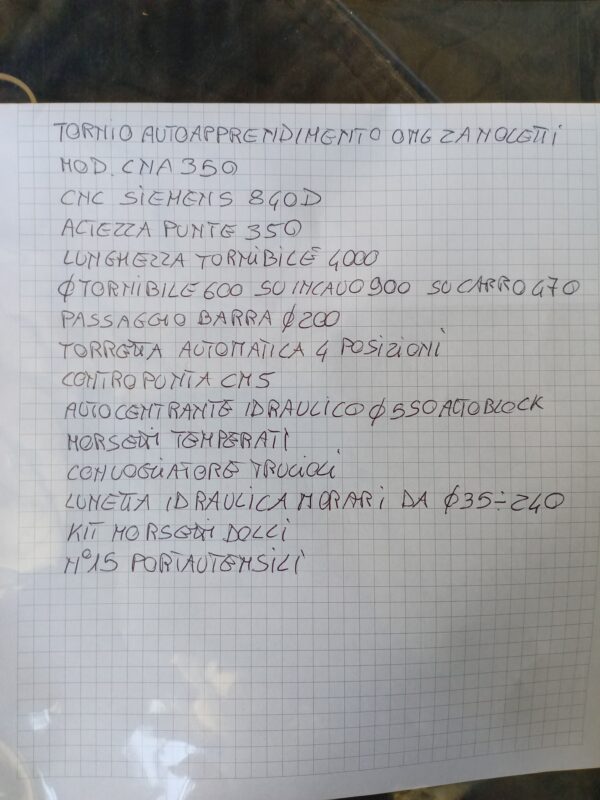 TORNIO AUTOAPPRENDIMENTO OMG ZANOLETTI
MOD. CNA 350
CNC SIEMENS 840D
ALTEZZA PUNTE 350
LUNGHEZZA TORNIBILE 4000
φ TORNIBILE 600 SU INCAVO 900 SU CARRO 470
PASSAGGIO BARRA φ 200
TORRETTA AUTOMATICA 4 POSIZIONI
CONTROPUNTA CM5
AUTOCENTRANTE IDRAULICO φ 550 AUTOBLOCK
MORSETTI TEMPERATI
CONVOGLIATORE TRUCIOLI
LUNETTA IDRAULICA MORARI DA φ 35÷240
KIT MORSETTI DOLCI
N°15 PORTAUTENSILI